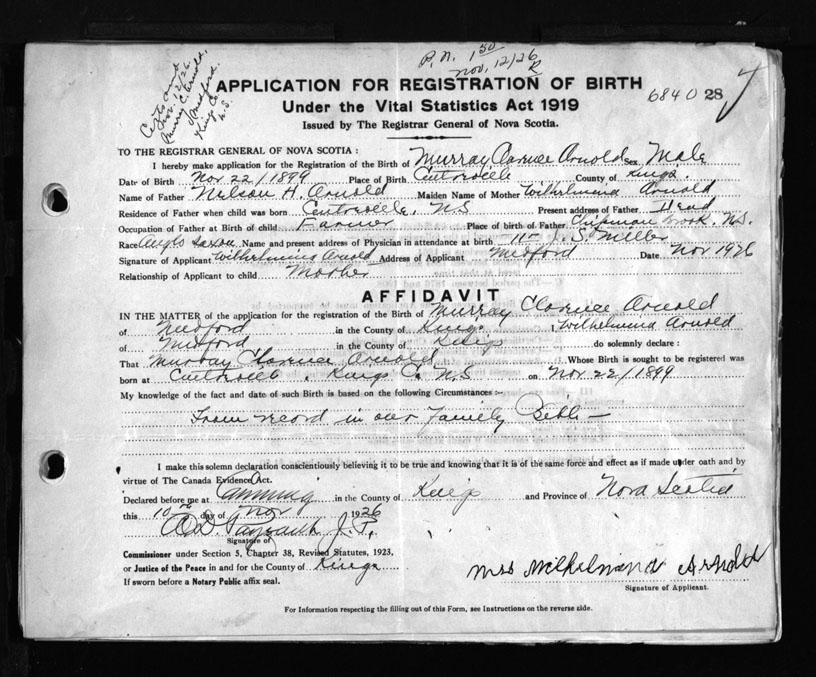 P. N. 1 50
Nov. 12/26
R
Nov. 12/26.
Murray C. Arnold,
Medford,
Kings Co.
N.S.
APPLICATION FOR REGISTRATION OF BIRTH
6840 28
Under the Vital Statistics Act 1919
Issued by The Registrar General of Nova Scotia.
TO THE REGISTRAR GENERAL OF NOVA SCOTIA :
I hereby make application for the Registration of the Birth of Murray Clarence Arnold Sex Male
Date of Birth Nov 22/1899 Place of Birth Centreville County of Kings.
Name of Father Nelson H. Arnold Maiden Name of Mother Wilhelmina Arnold
Residence of Father when child was born Centreville, N.S Present address of Father Dead
Occupation of Father at Birth of child Farmer Place of birth of Father Chipman Brook. N.S.
Race Anglo Saxon Name and present address of Physician in attendance at birth J. S. Miller
Signature of Applicant Wilhelmina Arnold Address of Applicant Medford Date Nov 1926
Relationship of Applicant to child Mother
AFFIDAVIT
IN THE MATTER of the application for the registration of the Birth of Murray Clarence Arnold
of Medford in the County of Kings I, Wilhelmina Arnold
of Medford in the County of Kings do solemnly declare :
That Murray Clarence Arnold Whose Birth is sought to be registered was
born at Centreville, Kings Co. N.S. on Nov 22/1899
My knowledge of the fact and date of such Birth is based on the following Circumstances :-
From record in our Family Bible —
I make this solemn declaration conscientiously believing it to be true and knowing that it is of the same force and effect as if made under oath and by
virtue of The Canada Evidence Act.
Declared before me at Canning in the County of Kings and Province of Nova Scotia
this 10th day of Nov 1926
J. P.
Signature of
Commissioner under Section 5, Chapter 38, Revised Statutes, 1923,
or Justice of the Peace in and for the County of Kings
If sworn before a Notary Public affix seal.
Mrs Wilhelmina Arnold
Signature of Applicant.
For Information respecting the filling out of this Form, see Instructions on the reverse side.